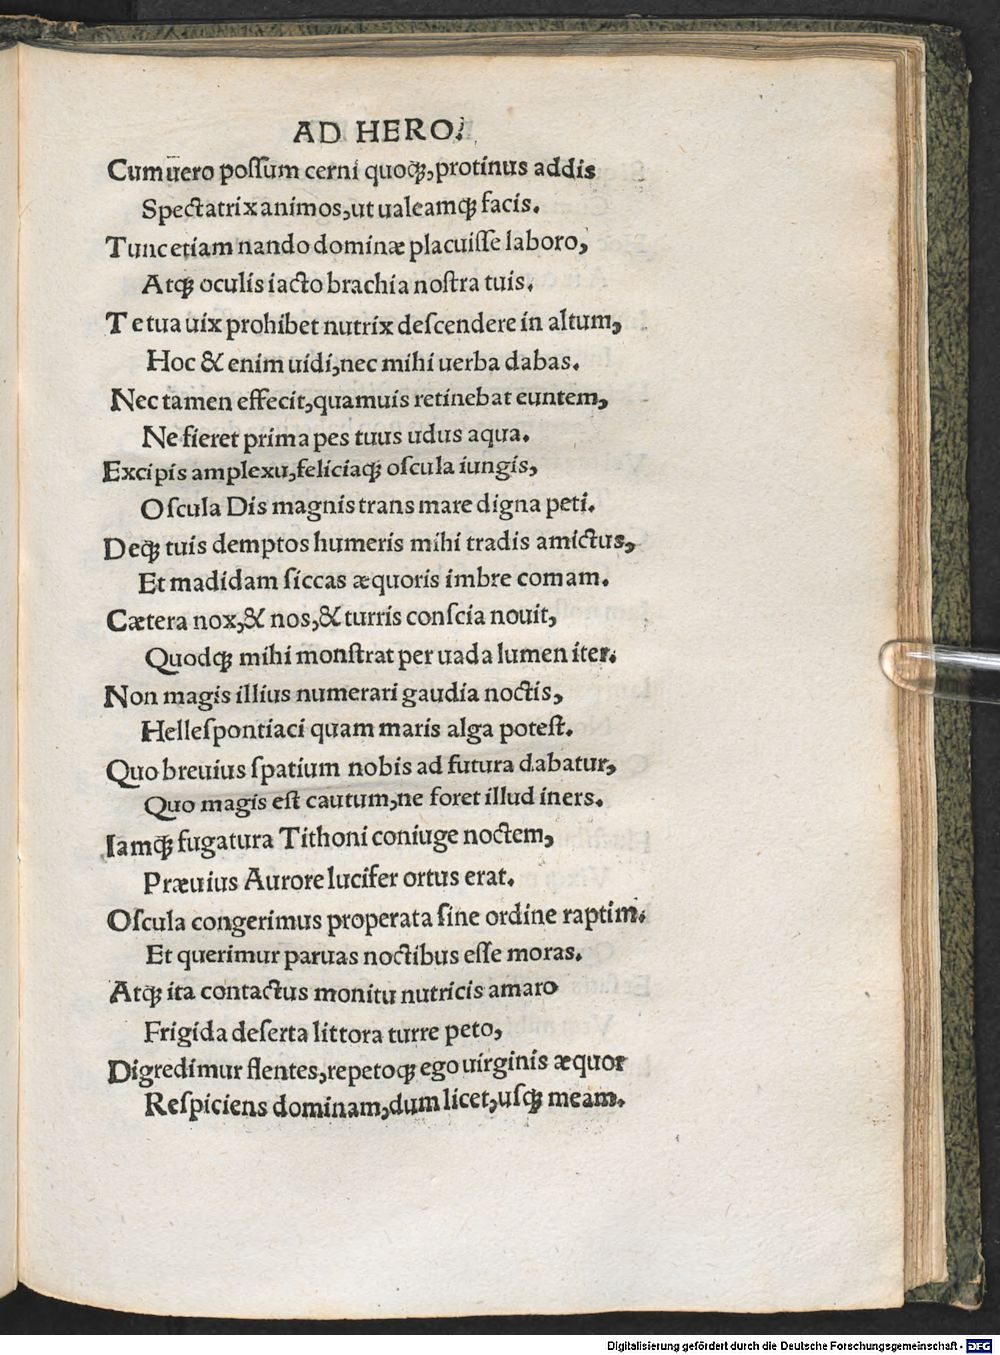 AD HERO.
Cum uero possum cerni quoqꝫ, protinus addis
Spectatrix animos, ut ualeamqꝫ facis.
Tunc etiam nando dominæ placuisse laboro,
Atqꝫ oculis iacto brachia nostra tuis.
Te tua uix prohibet nutrix descendere in altum,
Hoc & enim uidi, nec mihi uerba dabas.
Nec tamen effecit, quamuis retinebat euntem,
Ne fieret prima pes tuus udus aqua.
Excipis amplexu, feliciaqꝫ oscula iungis,
Oscula Dis magnis trans mare digna peti.
Deqꝫ tuis demptos humeris mihi tradis amictus,
Et madidam siccas æquoris imbre comam.
Cætera nox, & nos, & turris conscia nouit,
Quodqꝫ mihi monstrat per uada lumen iter.
Non magis illius numerari gaudia noctis,
Hellespontiaci quam maris alga potest.
Quo breuius spatium nobis ad futura dabatur,
Quo magis est cautum, ne foret illud iners.
Iamqꝫ fugatura Tithoni coniuge noctem,
Præuius Aurore lucifer ortus erat.
Oscula congerimus properata sine ordine raptim.
Et querimur paruas noctibus esse moras.
Atqꝫ ita contactus monitu nutricis amaro
Frigida deserta littora turre peto,
Digredimur flentes, repetoqꝫ ego uirginis æquor
Respiciens dominam, dum licet, usqꝫ meam.
Digitalisierung gefördert durch die Deutsche Forschungsgemeinschaft - DFG